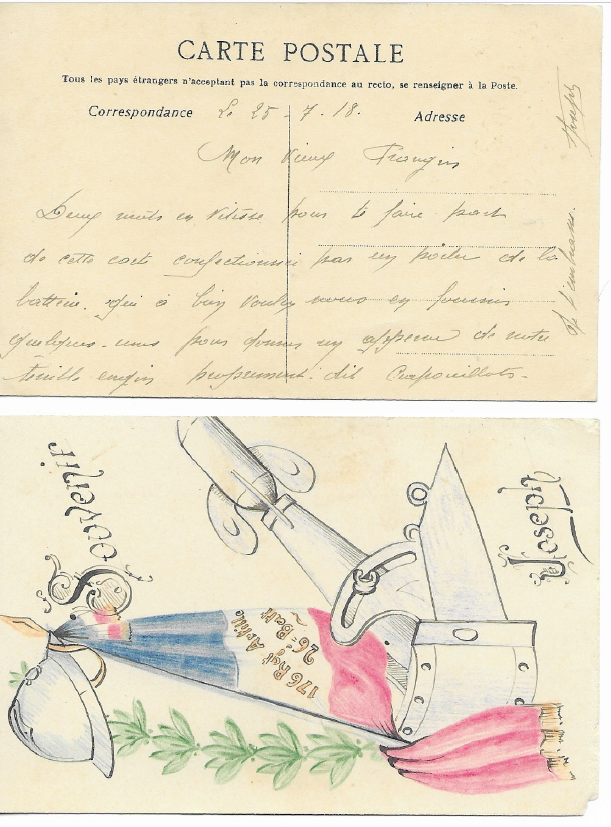 CARTE POSTALE
Tous les pays étrangers n'acceptant pas la correspondance au recto, se renseigner à la Poste.
Correspondance Le 25-7.18. Adresse
Mon Vieux Frangin
Deux mots en vitesse pour te faire part
de cette carte confectionnée par un poilu de la
batterie. qui a bien voulu nous en fournir
quelques-unes pour donner un apperçu de notre
terrible engin proprement dit Crapouillots.
Joseph
Souvenir
Joseph
176 Rgt Artilie
26e Batt